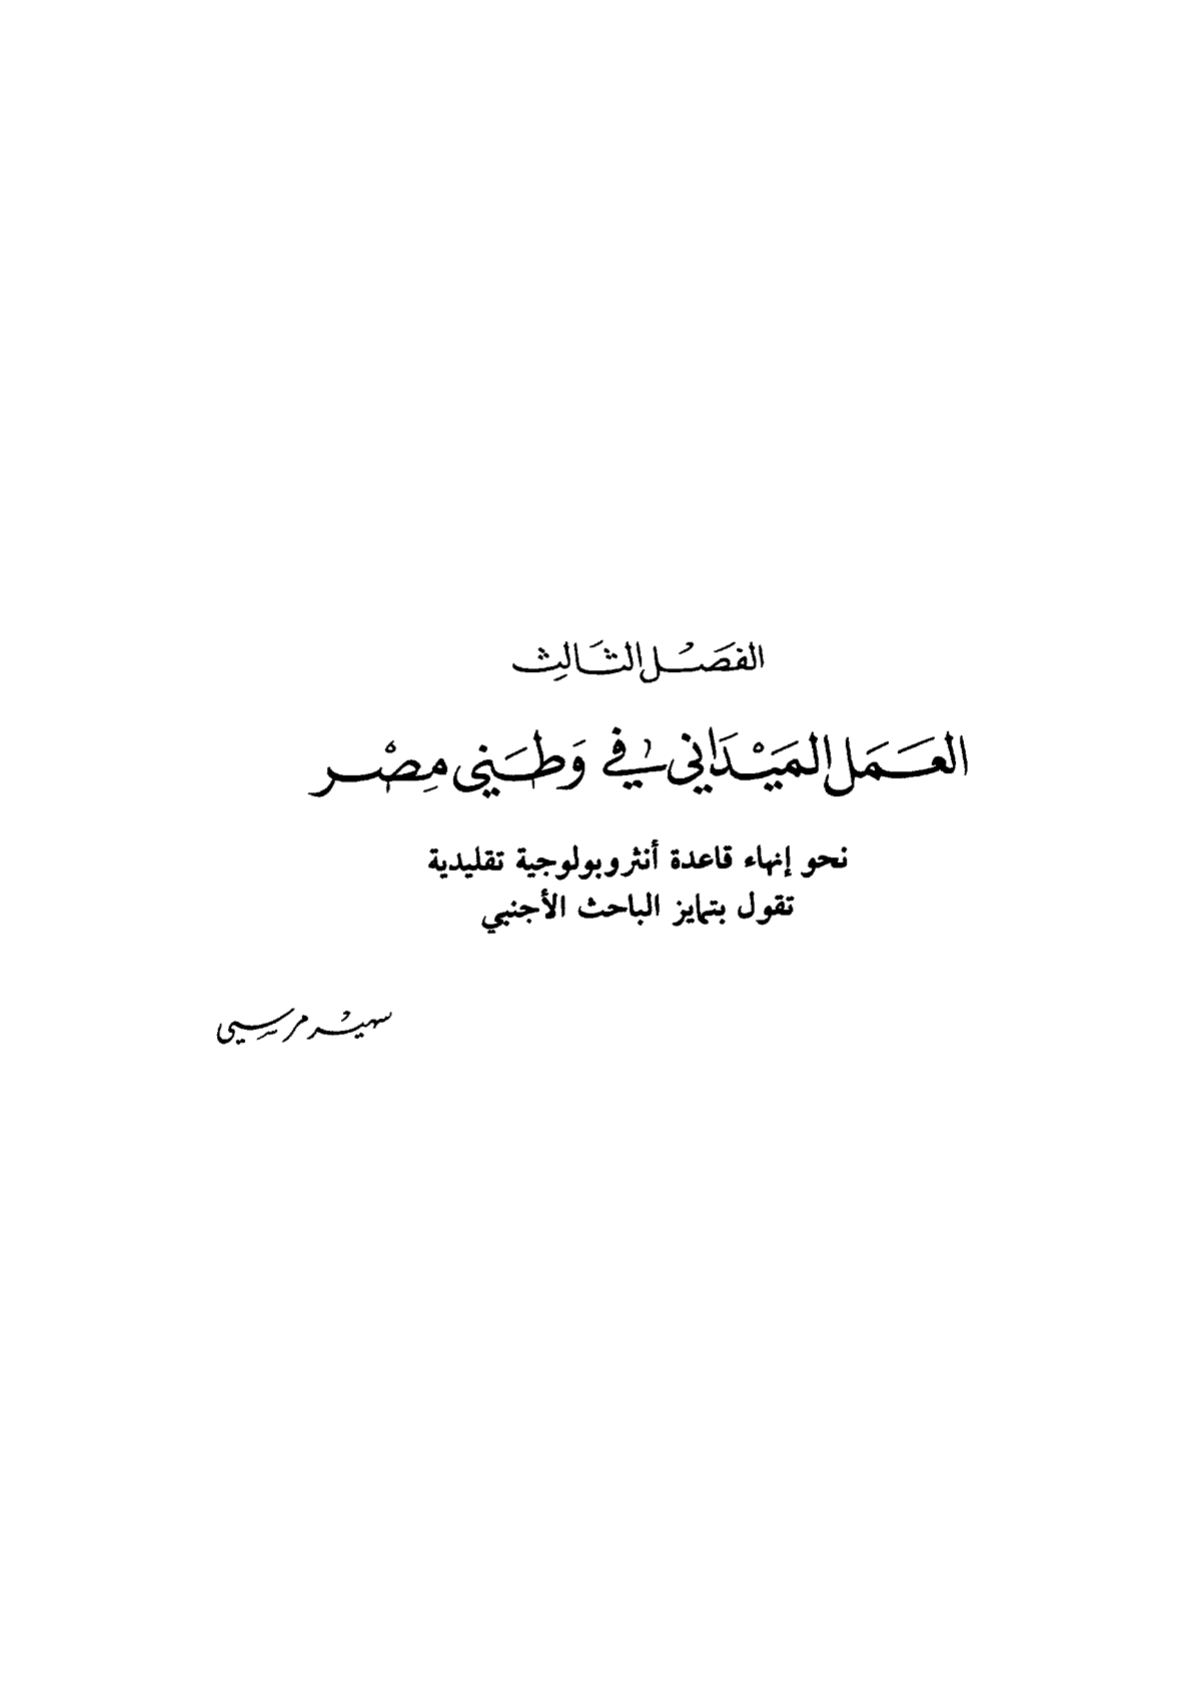 الفصل الثالث
العمل الميداني في وطني مصر
نحو إنهاء قاعدة أنثروبولوجية تقليدية
تقول بتمايز الباحث الأجنبي
سهير مرسي